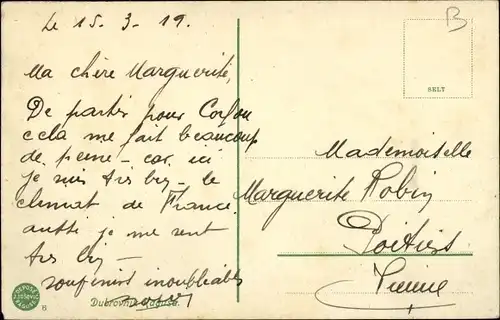 Le 15. 3. 19.
Ma chère Marguerite,
De partir pour Corfou
cela me fait beaucoup
de peine - car ici
je suis très bien - le
climat de France
aussi je me sent
très bien -
souvenirs inoubliables
Mademoiselle
Marguerite Robin
Poitiers
Vienne
B
SELT
DEPOSÉ
RAGUSE
6
Dubrovnik Ragusa.